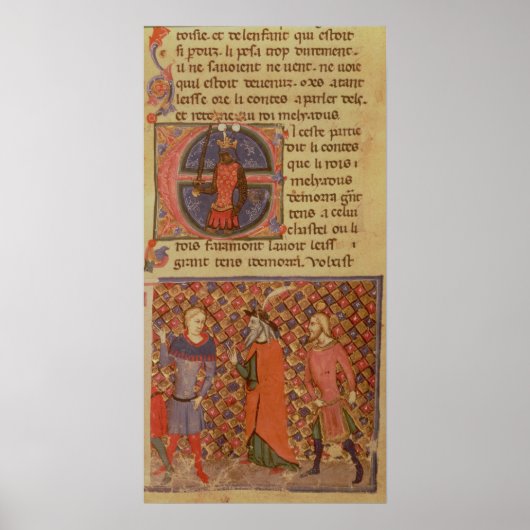 toisie. et delenfant qui estoit
si pduz. li pesa trop durement.
il ne savoient ne vent. ne voie
quil estoit devenuz. oxes atant
leisse ore li contes a parler dels.
et retorne au roi melyadus.
N ceste partie
dit li contes
que li rois
melyadus
demora gñt
tens a celui
chastel ou li
rois faramont lavoit leissi
grant tens idemora.